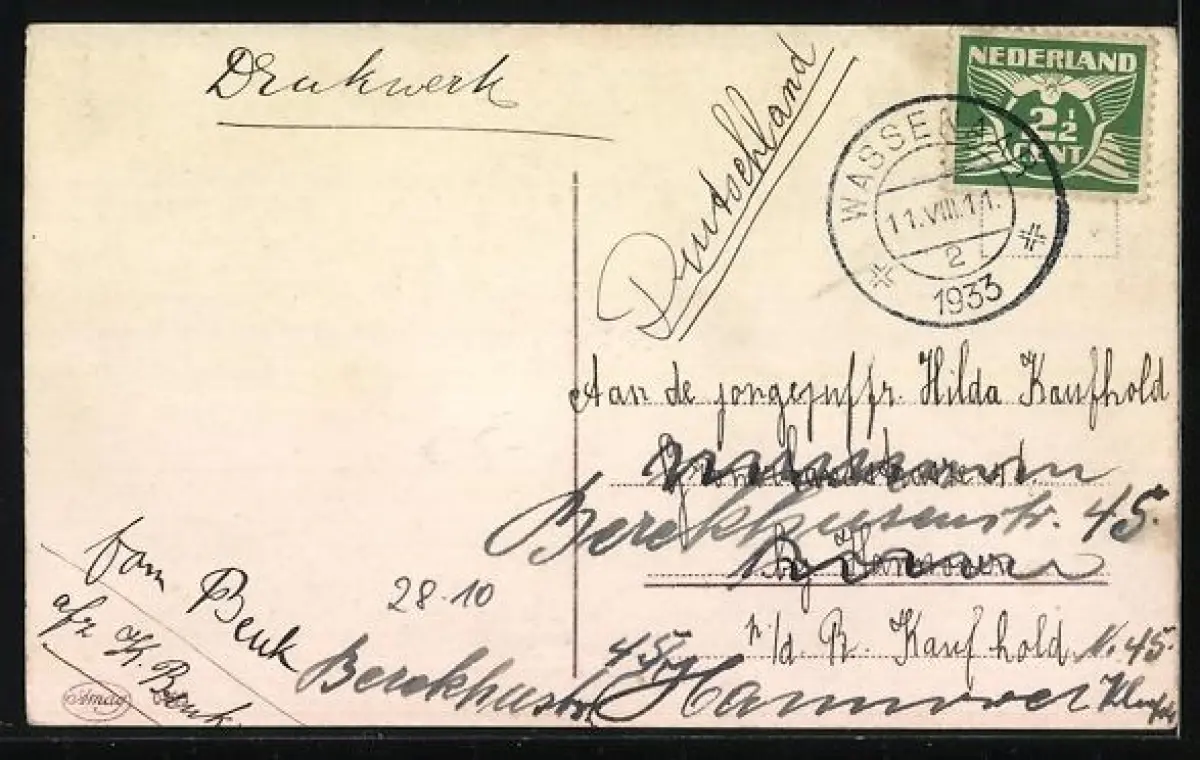 Drukwerk
Deutschland
NEDERLAND
2½
CENT
WASSENAAR
11.VIII.11.
2
1933
Aan de jongejuffr. Hilda Kaufhold
Berckhusenstr. 45.
p/d R. Kaufhold N. 45.
45 Hannover
Berckhusstr
28-10
Fam Beuk
afz K. Beuk
Amag